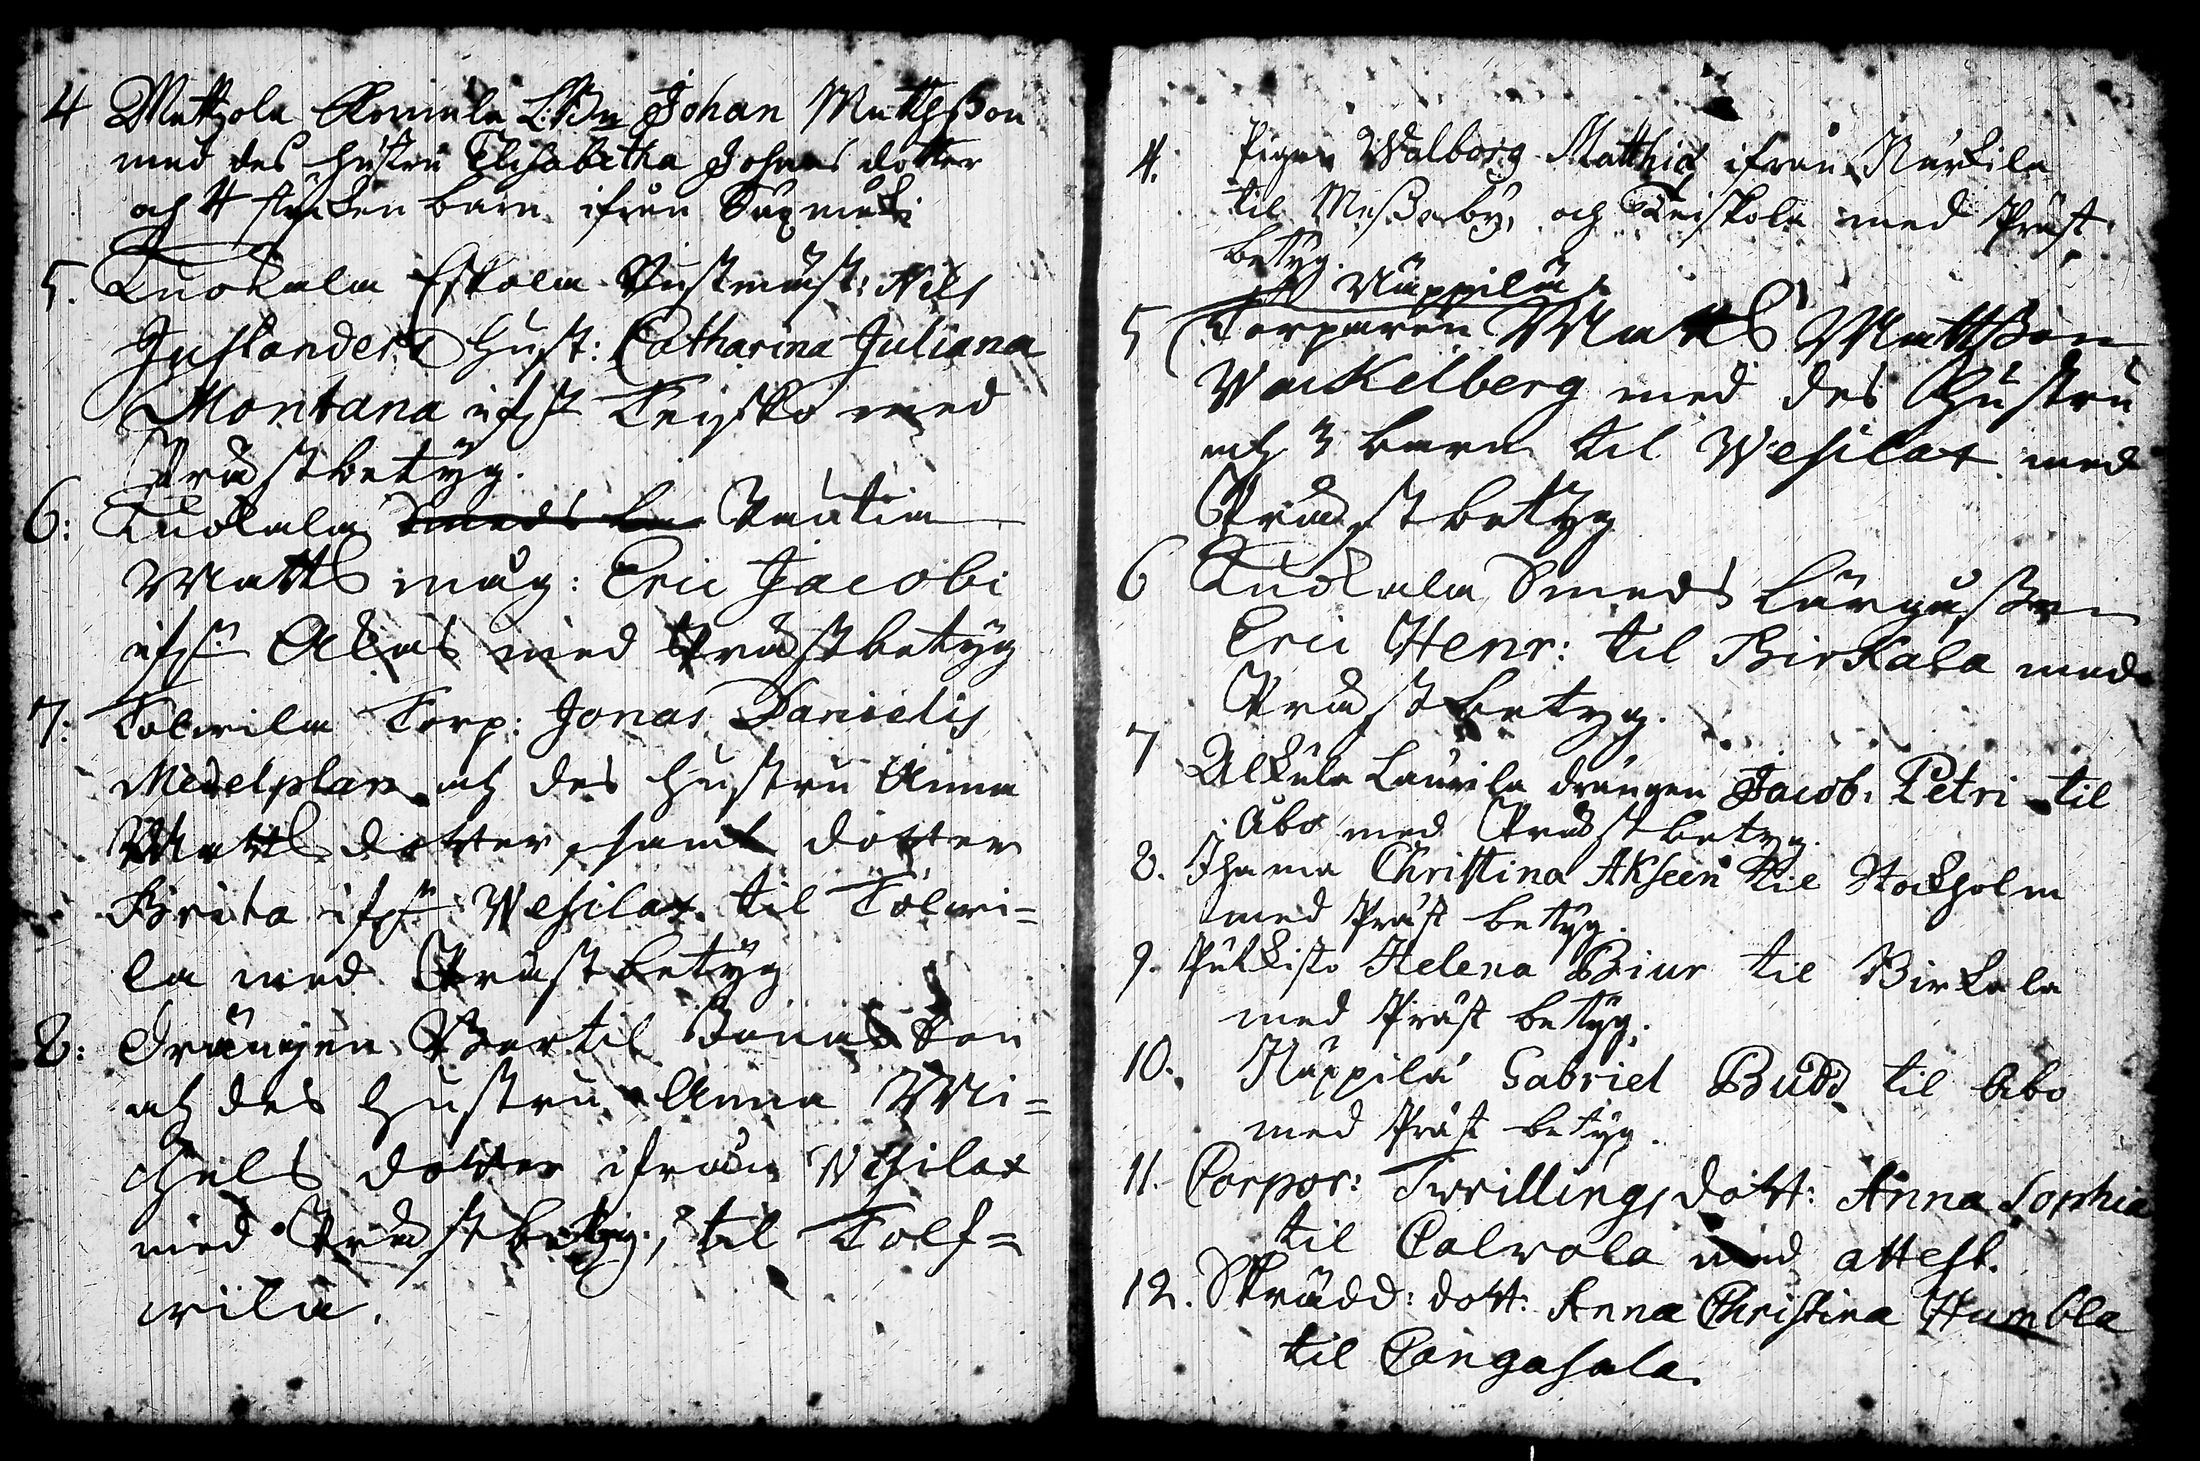 4 Mattzola Anniala L:Bn Johan Mattsßon
med des hustru Elisabetha Johans dotter
och 4 stycken barn ifrån Saxmäki
5. Kuokala Eskola Rustmäst: Nils
Juslanders Hust: Catharina Juliana
Montana ifr Teisko med
Prästbetyg.
6: Kuokala Smeds Lä Rautia
Matts måg: Eric Jacobi
ifr Akas med Prästbetyg
7: Tolwila Torp: Jonas Danielis
Medelplan och des hustru Anna
Matts dotter, samt dotter
Brita ifr Wesilax til Tolwi=
la med Prästbetyg
8: Drängen Bertil Jonas Son
och des hustru Anna Mi=
chels dotter ifrån Wesilax
med Prästbetyg, til Tolf=
wila.
4. Pigan Walborg Matthiæ ifrån Närkila
til Meßuby, och Teiskola med Präst
betyg.
Näppilä
5 Torparen Matts Mattßon
Wackelberg med des Hustru
och 3 barn til Wesilax med
Prästbetyg
6 Kuokala Smeds Lärgoßen
Eric Henr: til Birkala med
Prästbetyg.
7 Alkula Laurila drängen Jacob Petri til
Åbo med Prästbetyg.
8. Ihama Christina Akseen til Stockholm
med Präst betyg.
9. Pulkisto Helena Biur til Birkala
med Präst betyg.
10. Näppilä Gabriel Budd til Åbo
med Präst betyg.
11. Corpor: Twilling, dott: Anna Sophia
til Calvola med attest.
12. Skrädd: dott: Anna Christina Humbla
til Cangasala.